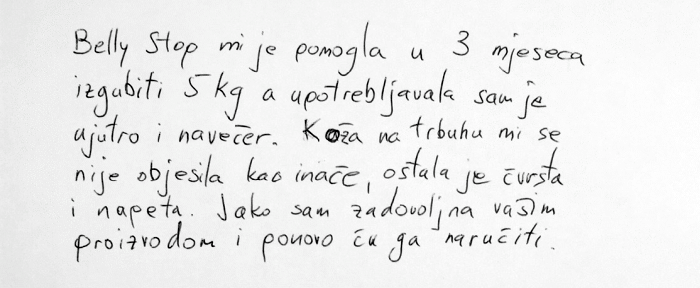 Belly Stop mi je pomogla u 3 mjeseca
izgubiti 5 kg a upotrebljavala sam je
ujutro i navečer. Koža na trbuhu mi se
nije objesila kao inače, ostala je čvrsta
i napeta. Jako sam zadovoljna vašim
proizvodom i ponovo ću ga naručiti.